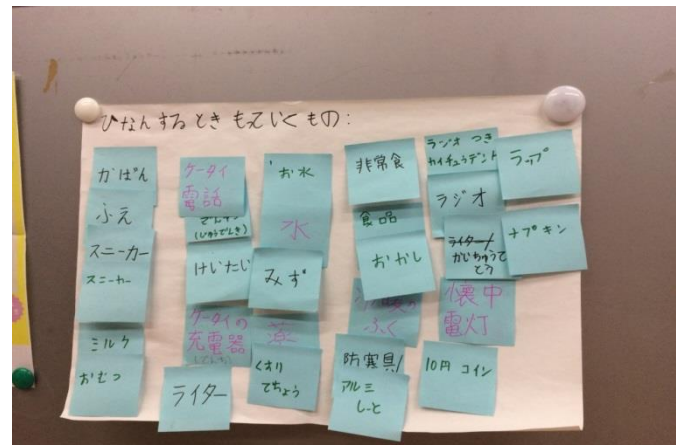 ひなんするとき もっていくもの:
かばん
ふえ
スニーカー
スニーカー
ミルク
おむつ
ケータイ
電話
(じゅうでんき)
けいたい
ケータイの
充電器
ライター
お水
水
みず
薬
くすり
てちょう
非常食
食品
おかし
ふく
防寒具/
アルミ
しーと
ラジオ つき
カイチュウデント
ラジオ
ライター/
かいちゅうで
とう
懐中
電灯
10円 コイン
ラップ
ナプキン